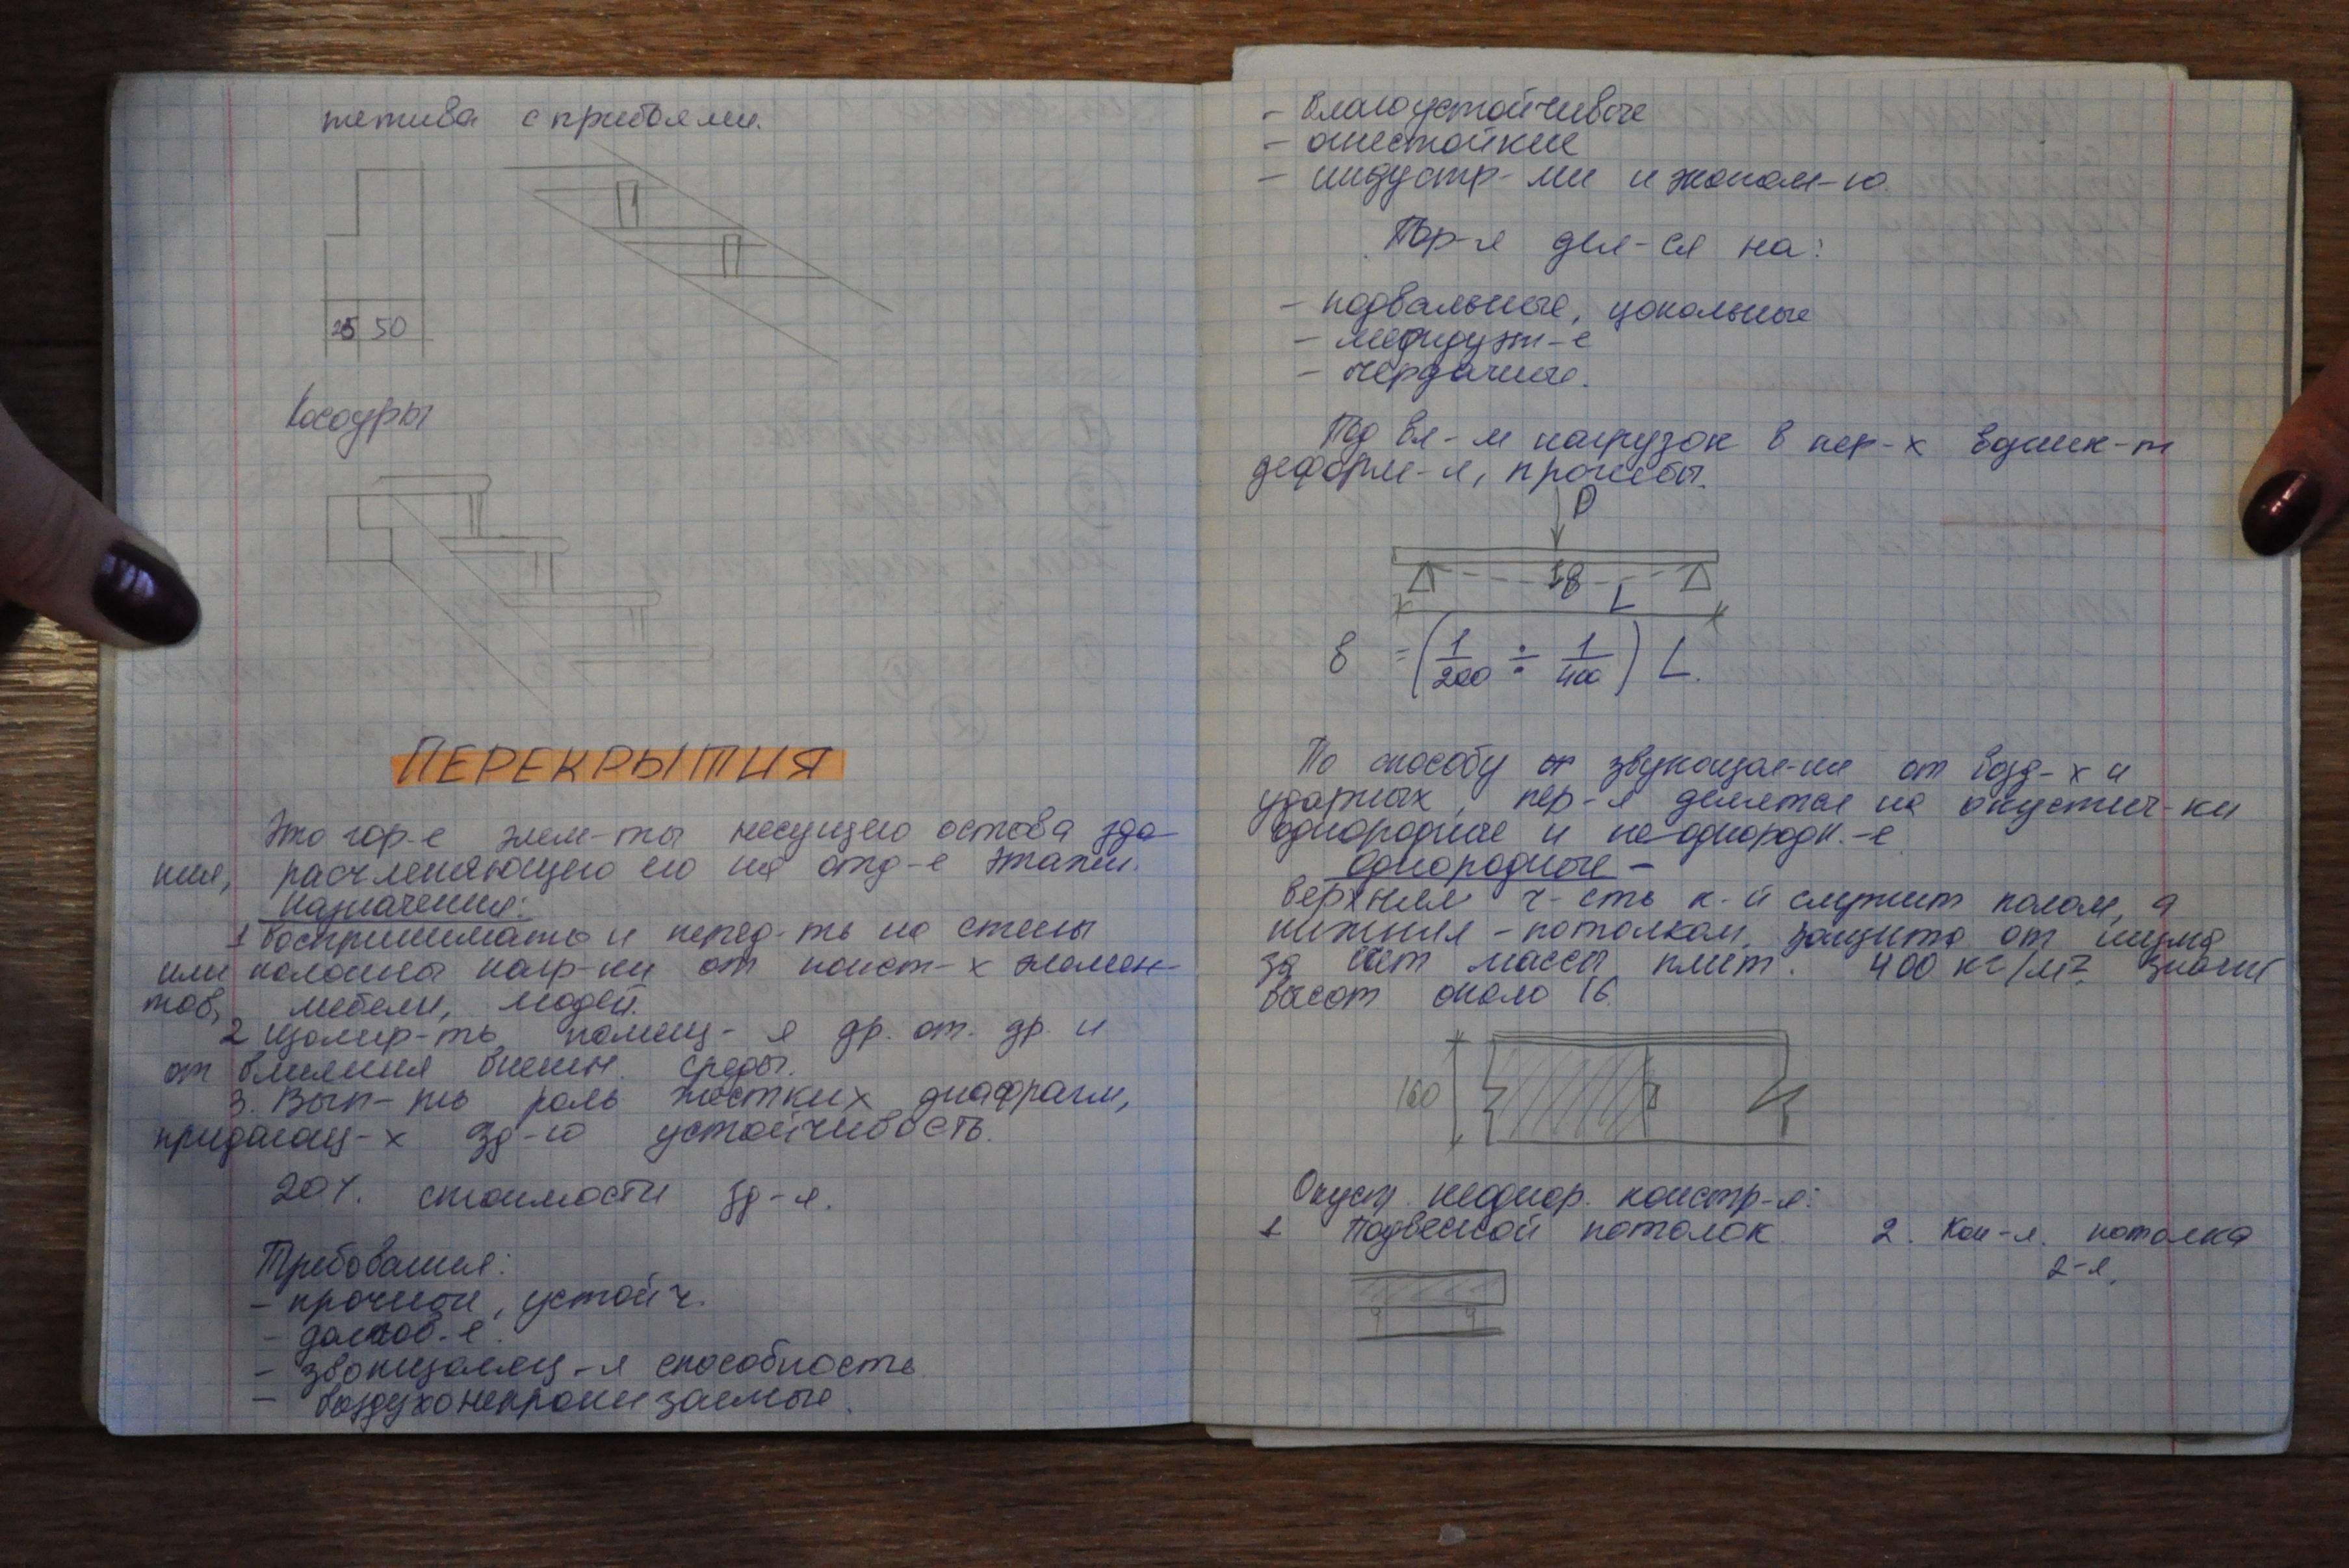 тетива с прибоями.
25 50
Косоуры
ПЕРЕКРЫТИЯ
Это гор-е элем-ты несущего остова зда-
ния, расчленяющего его на отд-е этажи.
назначения:
1 воспринимать и перед-ть на стены
или колонны нагр-ки от конст-х элемен-
тов, мебели, людей.
2 Изолир-ть помещ-я др. от. др. и
от влияния внешн. среды.
3. Вып-ть роль жестких диафрагм,
придающ-х зд-ю устойчивость.
20%. стоимости зд-я.
Требования:
- прочной, устойч.
- долгов-е.
- способность
- воздухонепроницаемые.
- влагоустойчивые
- огнестойкие
- индустр-ми и эконом-ю
Пер-я дел-ся на:
- подвальные, цокольные
- междуэт-е
- чердачные.
Под вл-м нагрузок в пер-х возник-т
деформ-я, прогибы.
P
L
= (1/200 ÷ 1/400) L.
По способу от звукоизол-ии от возд-х и
ударных, пер-я делятся на акустич-ки
однородные и неоднородн.-е
однородные -
верхняя ч-сть к-й служит полом, а
нижняя - потолком. защита от шума
за счет массы плит. 400 кг/м² значит
высот около 16.
160
Акуст. неоднор. констр-я:
1 Подвесной потолок. 2. Кон-я. потолка
2-я.